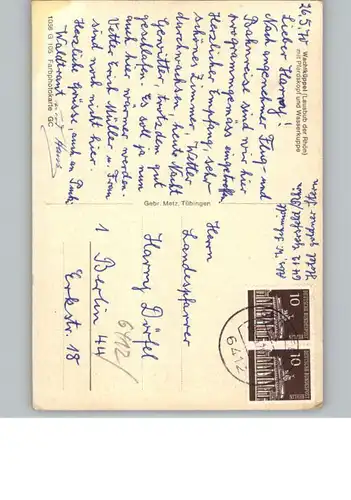 Wachtküppel (Landstub der Rhön)
mit Pferdskopf und Wasserkuppe
26.5.71
Lieber Harry!
Nach angenehmer Flug- und
Bahnreise sind wir hier
programmgemäß eingetroffen.
Herzlicher Empfang, sehr
schönes Zimmer, Wetter
durchwachsen, heute Nacht
Gewitter, trotzdem gut
geschlafen. Es soll ja nun
auch hier warmer werden.
Vetter Erich Müller u. Frau
sind noch nicht hier.
Herzliche Grüsse, auch an
Waltraut und Hans
1036 G 105 Farbphotokarte GC
Gebr. Metz, Tübingen
Abs. Dr. H. Schmidt
6412
10
10
DEUTSCHE BUNDESPOST
BERLIN
6412
Herrn
Landespfarrer
Harry Döpfel
1 Berlin 44
6412/
Erkstr. 18